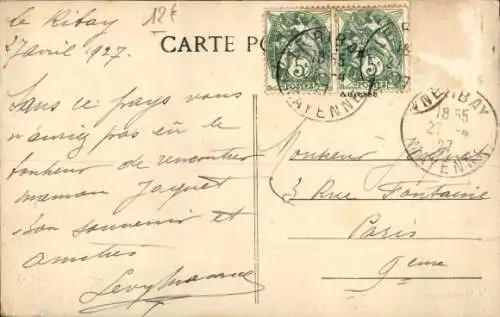 Le Ribay
27 avril 1927.
12f
CARTE PO
5
5
LE RIBAY
MAYENNE
LE RIBAY
18 55
27 -4
27
MAYENNE
Dans ce pays vous
n'auriez pas eu le
bonheur de rencontrer
maman Jaquet
Bon souvenir et
amitiés
Monsieur
3 Rue Fontaine
Paris
9eme